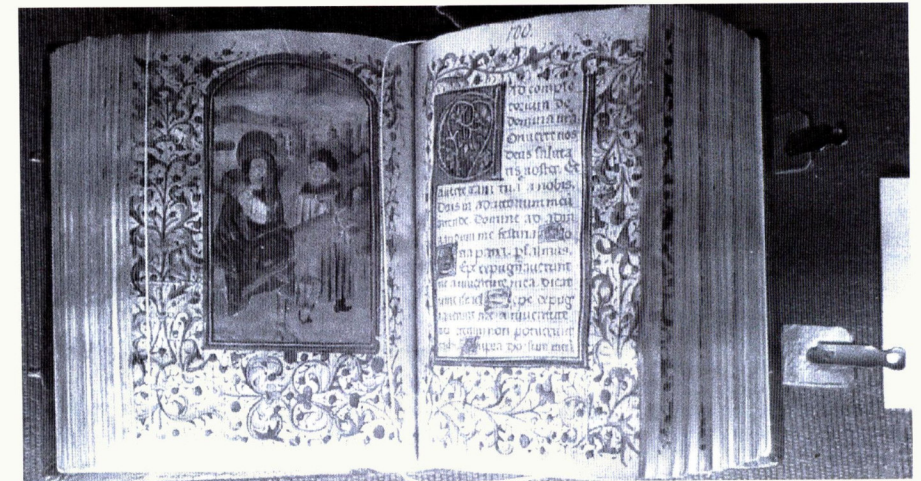 100.
Ad comple
torium de
domina nra
Onuerte nos
deus saluta
ris noster. Et
auerte iram tuā a nobis.
Deus in adiutorium meū
intende Domine ad adiu
uandum me festina
na p̄ri. psalmus.
Epe expugnauerunt
me a iuuentute mea dicat
nunc isrl Sepe expug
nauerunt me a iuuentute
non potuerunt
Supra dorsum meū